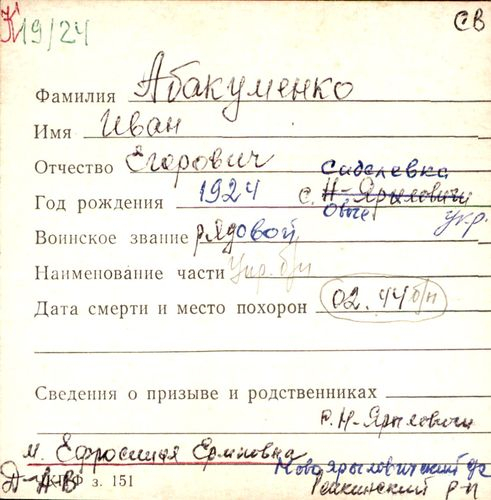 К19/24
СВ
Фамилия Абакуменко
Имя Иван
Отчество Егорович
Сиделевка
Год рождения 1924 с. Н-Ярыловичи
Овые укр.
Воинское звание рядовой
Наименование части Упр. б/п
Дата смерти и место похорон 02.44 б/п
Сведения о призыве и родственниках
с. Н-Ярыловичи
м. Ефросиния
Новоярыловичский
Д-АВ з. 151 Репкинский р-н